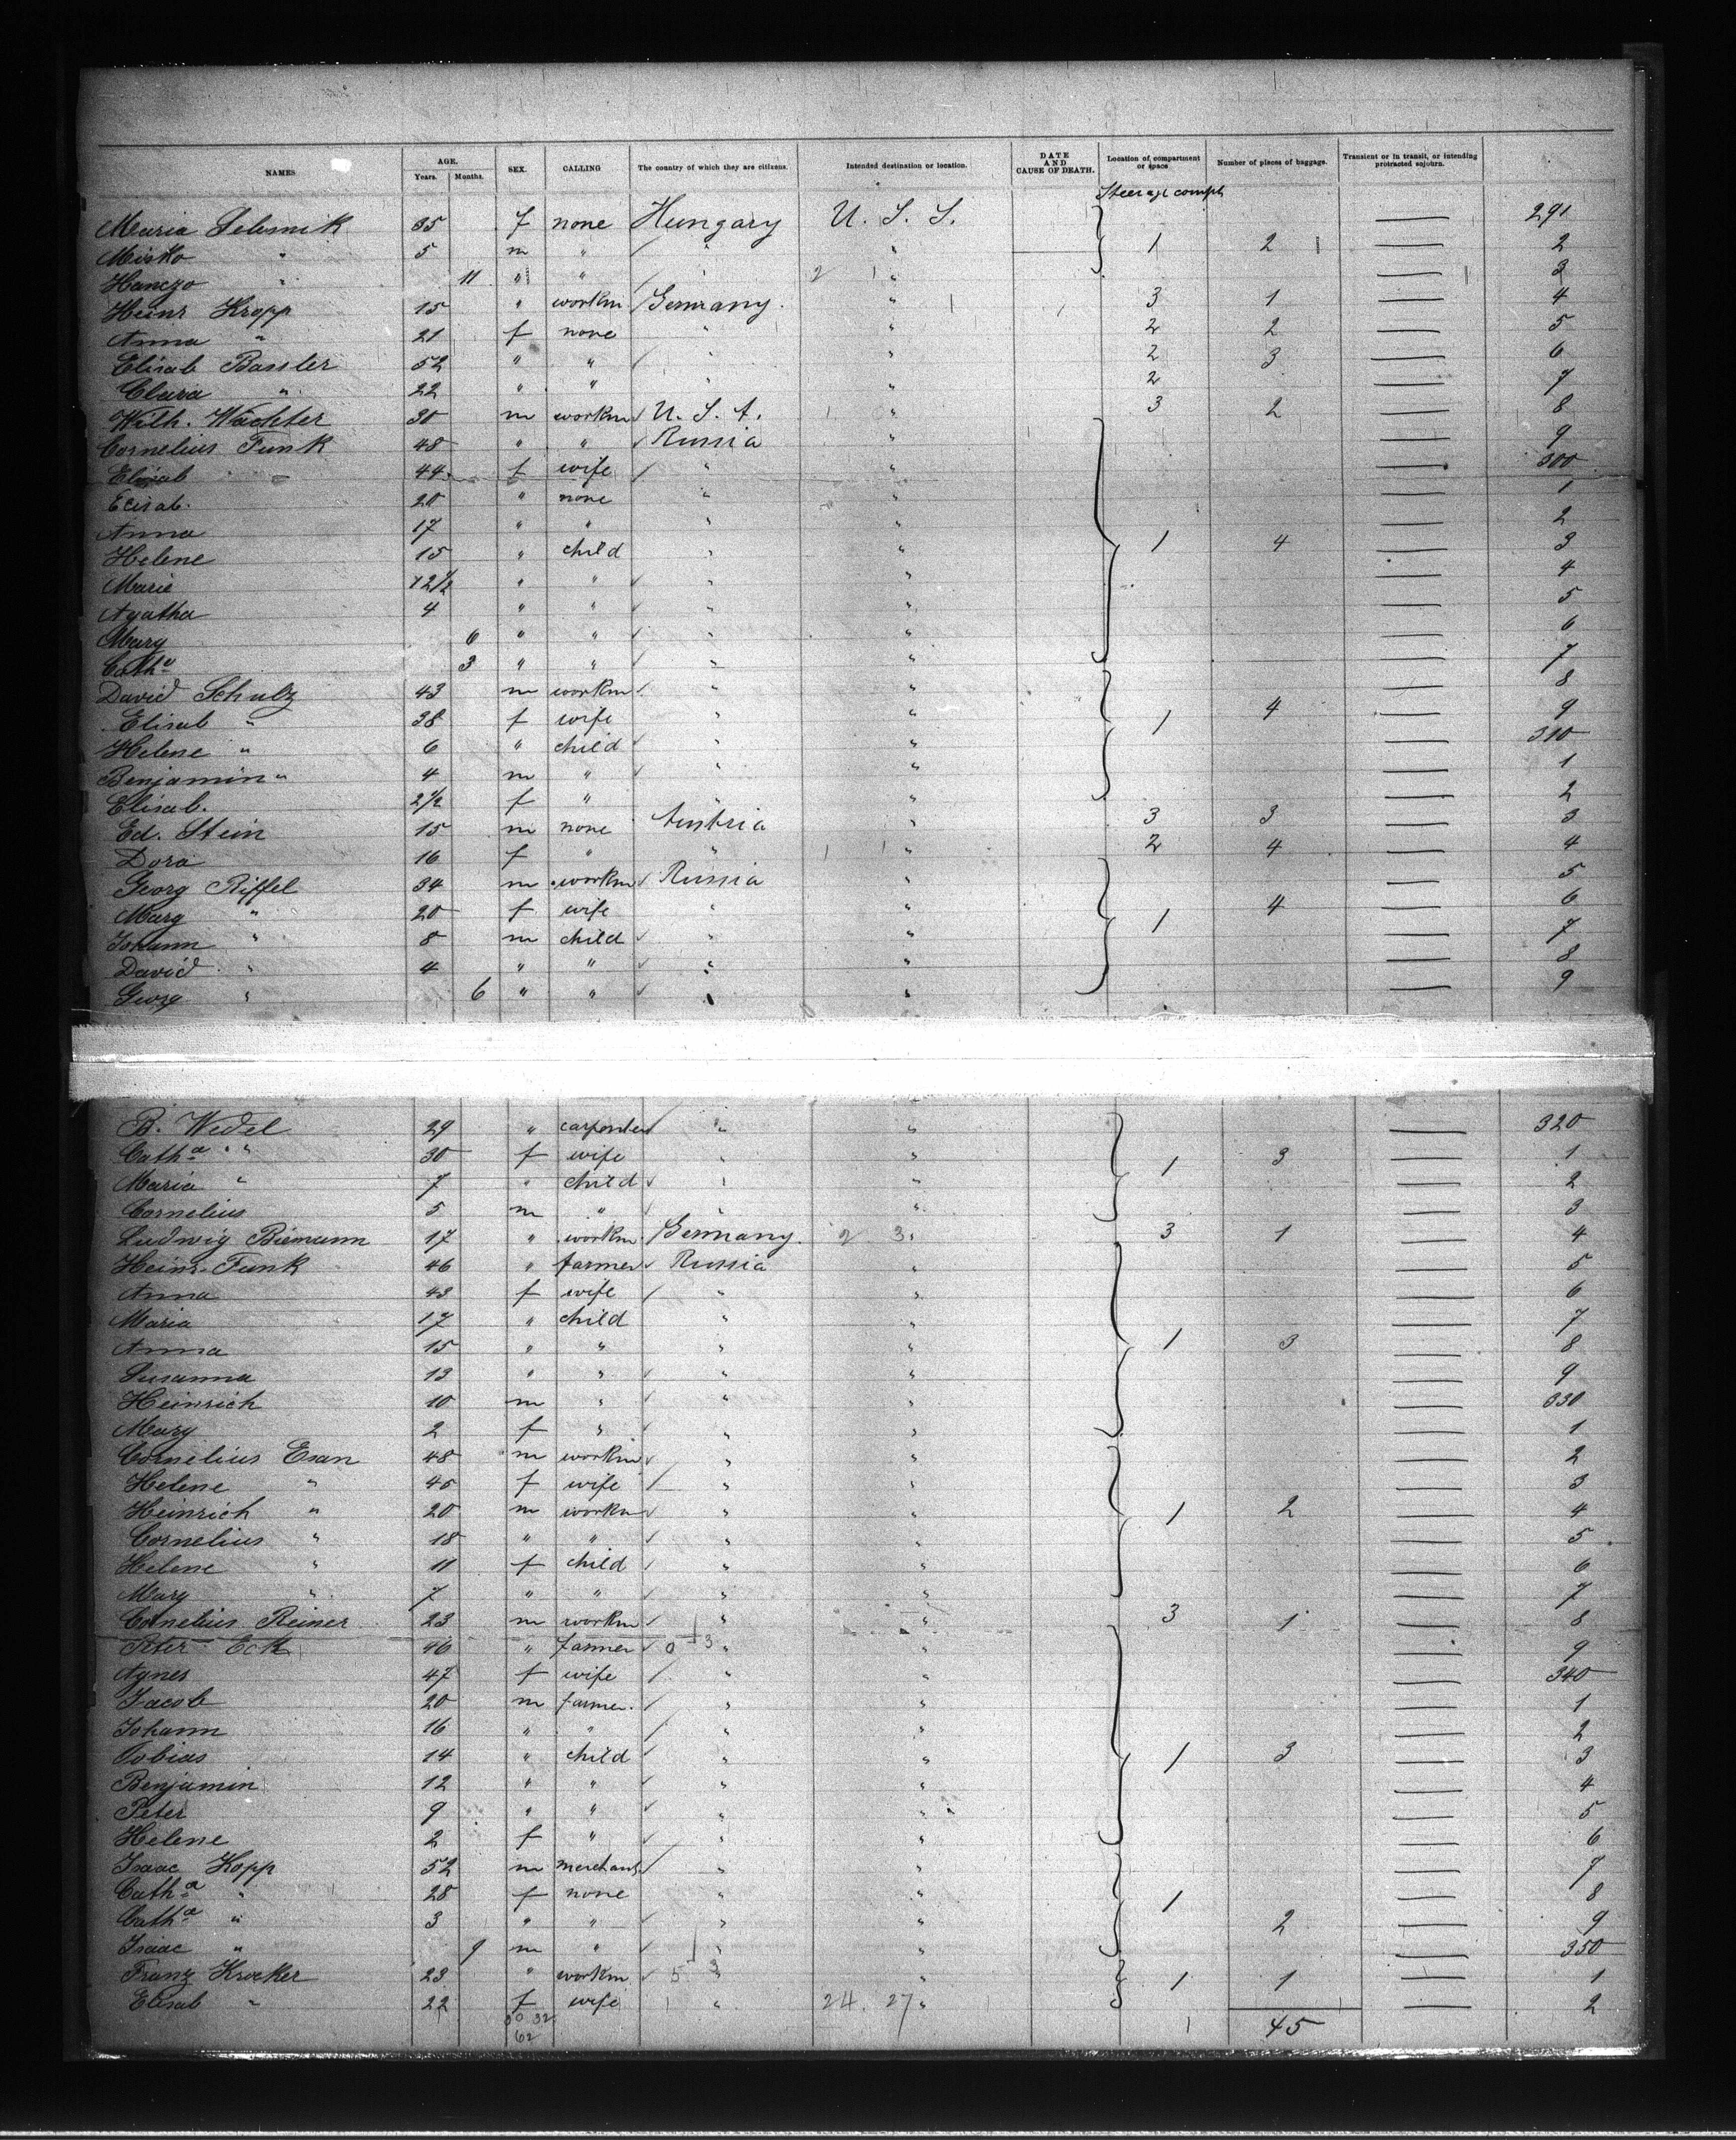 NAMES AGE. Years. Months. SEX. CALLING The country of which they are citizens. Intended destination or location. DATE AND CAUSE OF DEATH. Location of compartment or space Number of pieces of baggage. Transient or in transit, or intending protracted sojourn.
Steerage compt
Maria 35 f none Hungary U. S. S. — 291
Misko " 5 m " " " 1 2 — 2
Hanczo " 11 " " " 2 1 " — 3
Heinr Kropp 15 " workm Germany. " 3 1 — 4
Anna " 21 f none " " 2 2 — 5
Elisab Bassler 52 " " " " 2 3 — 6
Clara " 22 " " " " 2 — 7
Wilh. Wächter 30 m workm U. S. A. " 3 2 — 8
Cornelius Funk 48 " " Russia " — 9
Elisab " 44 f wife " " — 300
Elisab. 20 " none " " — 1
Anna 17 " " " " — 2
Helene 15 " child " " 1 4 — 3
Marie 12½ " " " " — 4
Agatha 4 " " " " — 5
Mary 6 " " " " — 6
Catha 3 " " " " — 7
David Schulz 43 m workm " " — 8
Elisab " 38 f wife " " 1 4 — 9
Helene " 6 " child " " — 310
Benjamin " 4 m " " " — 1
Elisab. 2½ f " " " — 2
Ed. Stein 15 m none Austria " 3 3 — 3
Dora 16 f " " 1 1 " 2 4 — 4
Georg Riffel 34 m workm Russia " — 5
Marg " 20 f wife " " 1 4 — 6
Johann " 8 m child " " — 7
David " 4 " " " " — 8
Georg " 6 " " " " — 9
B. Wedel 29 " carpenter " " — 320
Catha " 30 f wife " " 1 3 — 1
Maria " 7 " child " " — 2
Cornelius 5 m " " " — 3
Ludwig Biemann 17 " workm Germany. 2 3 " 3 1 — 4
Heinr. Funk 46 " farmer Russia " — 5
Anna 43 f wife " " — 6
Maria 17 " child " " — 7
Anna 15 " " " " 1 3 — 8
Susanna 13 " " " " — 9
Heinrich 10 m " " " — 330
Mary 2 f " " " — 1
Cornelius Esan 48 m workm " " — 2
Helene " 45 f wife " " — 3
Heinrich " 20 m workm " " 1 2 — 4
Cornelius " 18 " " " " — 5
Helene " 11 f child " " — 6
Mary " 7 " " " " — 7
Cornelius Reiner 23 m workm " " 3 1 — 8
Peter Eck 46 " farmer 0 3 " " — 9
Agnes 47 f wife " " — 340
Jacob 20 m farmer. " " — 1
Johann 16 " " " " — 2
Tobias 14 " child " " 1 3 — 3
Benjamin 12 " " " " — 4
Peter 9 " " " " — 5
Helene 2 f " " " — 6
Isaac Kopp 52 m merchant " " — 7
Catha " 28 f none " " 1 — 8
Catha " 3 " " " " 2 — 9
Isaac " 9 m " " " — 350
Franz Krocker 23 " workm 5 3 " " 1 1 — 1
Elisab " 22 f wife " 24. 27 " — 2
30 32 1 45
62